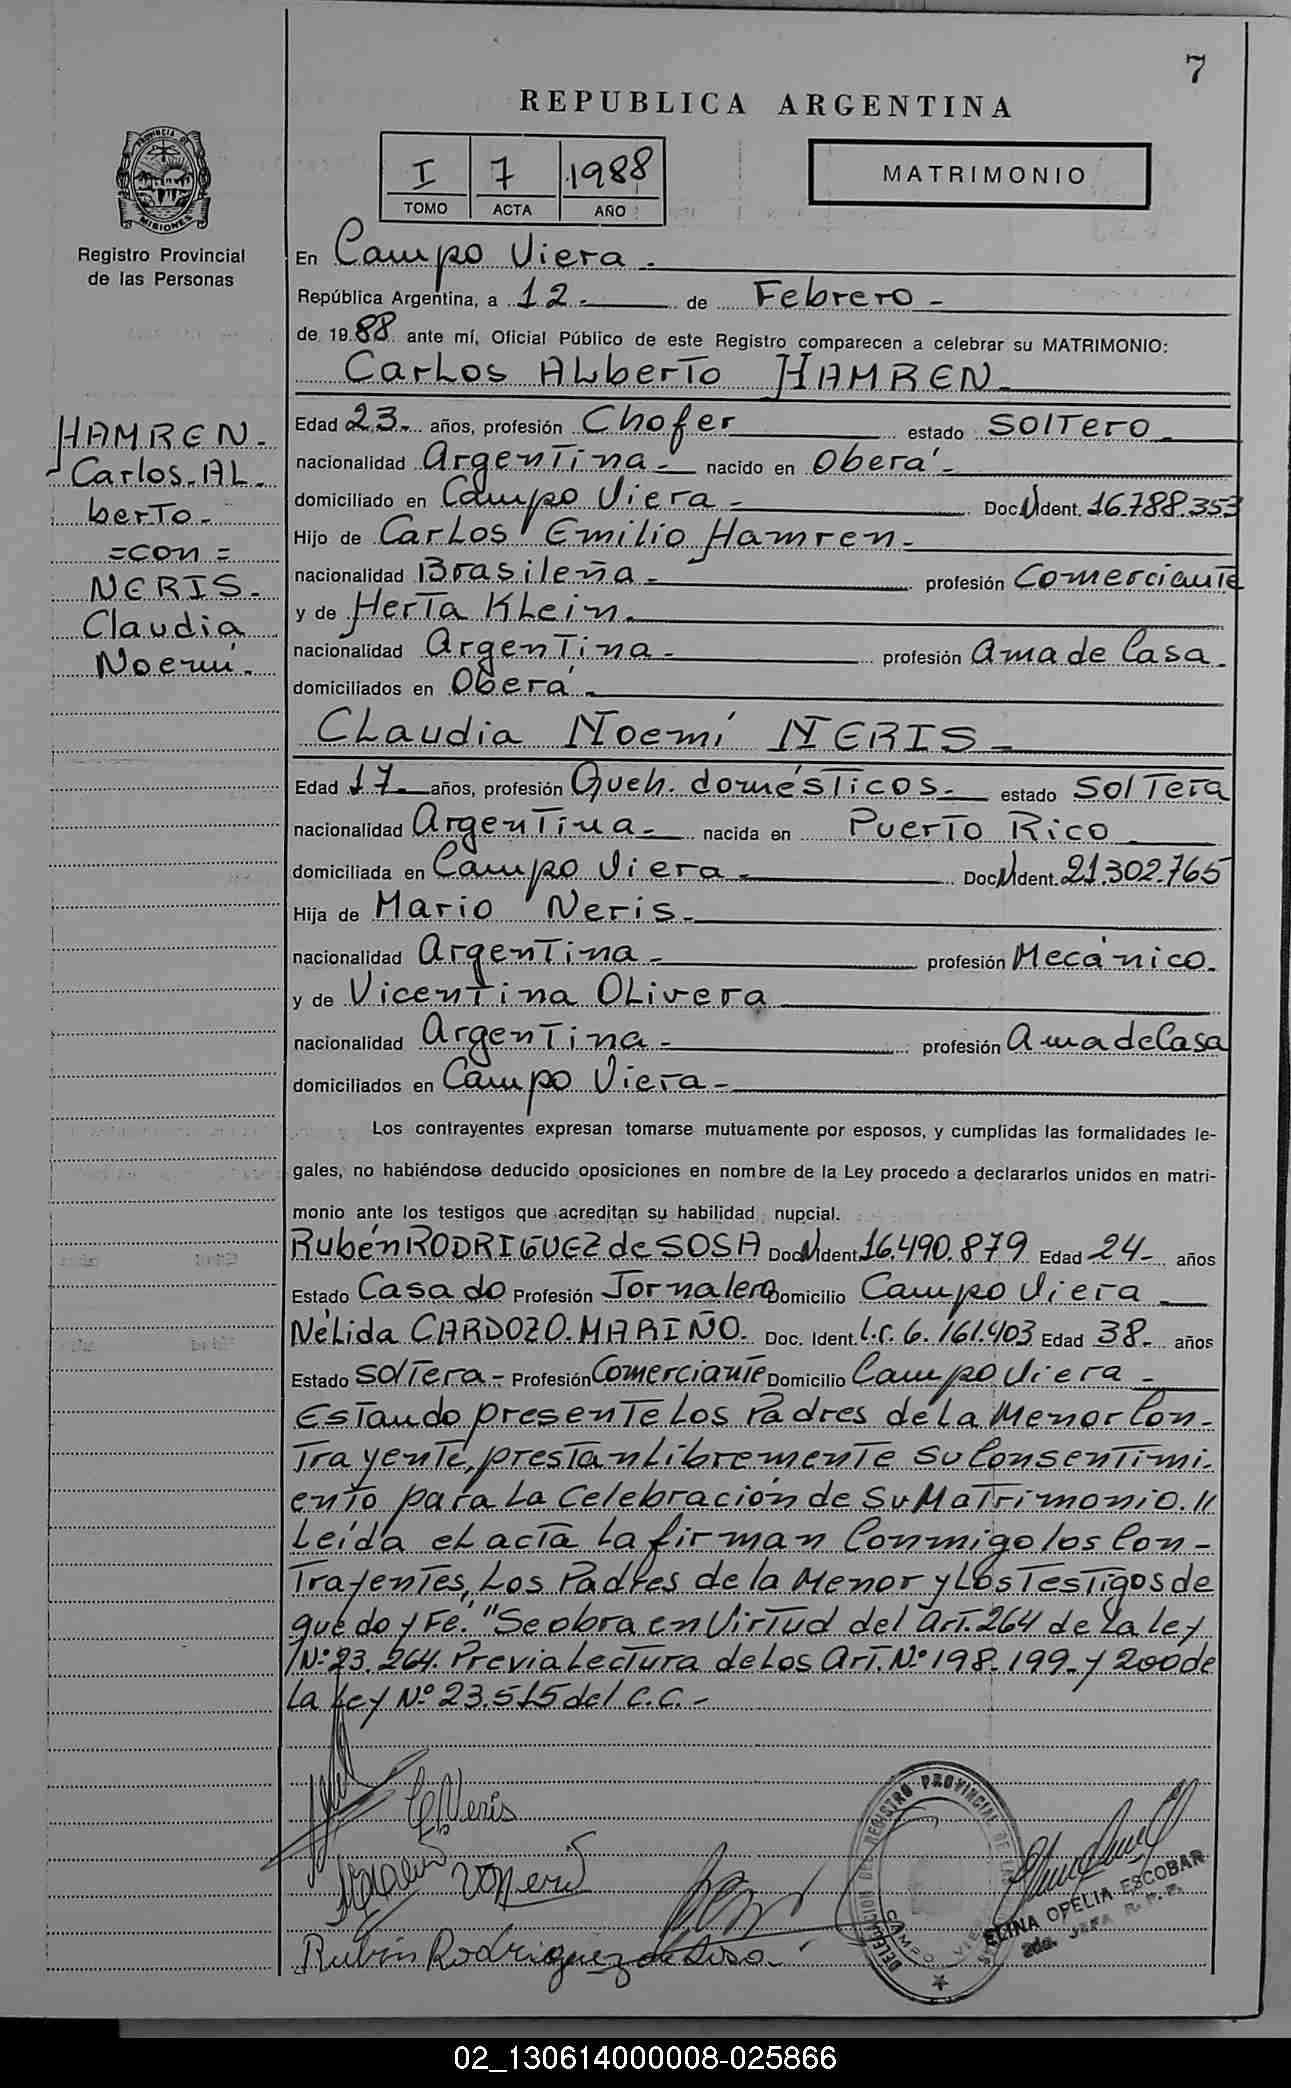 7
REPUBLICA ARGENTINA
PROVINCIA DE
MISIONES
I 7 1988
TOMO ACTA AÑO
MATRIMONIO
Registro Provincial
de las Personas
En Campo Viera.
República Argentina, a 12 de Febrero
de 1988 ante mí, Oficial Público de este Registro comparecen a celebrar su MATRIMONIO:
Carlos Alberto HAMREN
HAMREN.
Carlos AL
berto
=con=
NERIS.
Claudia
Noemí.
Edad 23 años, profesión Chofer estado Soltero
nacionalidad Argentina nacido en Oberá
domiciliado en Campo Viera Doc N Ident. 16.788.353
Hijo de Carlos Emilio Hamren
nacionalidad Brasileña profesión Comerciante
y de Herta Klein
nacionalidad Argentina profesión Ama de Casa.
domiciliados en Oberá
Claudia Noemí NERIS
Edad 17 años, profesión Queh. domésticos estado Soltera
nacionalidad Argentina nacida en Puerto Rico
domiciliada en Campo Viera Doc N Ident. 21.302.765
Hija de Mario Neris
nacionalidad Argentina profesión Mecánico.
y de Vicentina Olivera
nacionalidad Argentina profesión Ama de Casa
domiciliados en Campo Viera
Los contrayentes expresan tomarse mutuamente por esposos, y cumplidas las formalidades le-
gales, no habiéndose deducido oposiciones en nombre de la Ley procedo a declararlos unidos en matri-
monio ante los testigos que acreditan su habilidad nupcial.
Rubén RODRIGUEZ de SOSA Doc N Ident 16.490.879 Edad 24 años
Estado Casado Profesión Jornalero Domicilio Campo Viera
Nélida CARDOZO. MARIÑO. Doc. Ident. L.C. 6.161.403 Edad 38 años
Estado Soltera Profesión Comerciante Domicilio Campo Viera
Estando presente los Padres de la Menor Con-
trayente, prestan libremente su Consentimi-
ento para la Celebración de su Matrimonio.//
Leída el acta la firman Conmigo los Con-
trayentes, Los Padres de la Menor y Los Testigos de
que doy Fe." "Se obra en Virtud del Art. 264 de la ley
Nº 23.264. Previa Lectura de los Art. Nº 198-199 y 200 de
la Ley Nº 23.515 del C.C.-
C Neris
Rubén Rodriguez de Sosa
DELEGACION DEL REGISTRO PROVINCIAL DE LAS
CAMPO VIERA
ELINA OFELIA ESCOBAR
2da. JEFA R. P. P.
02_130614000008-025866